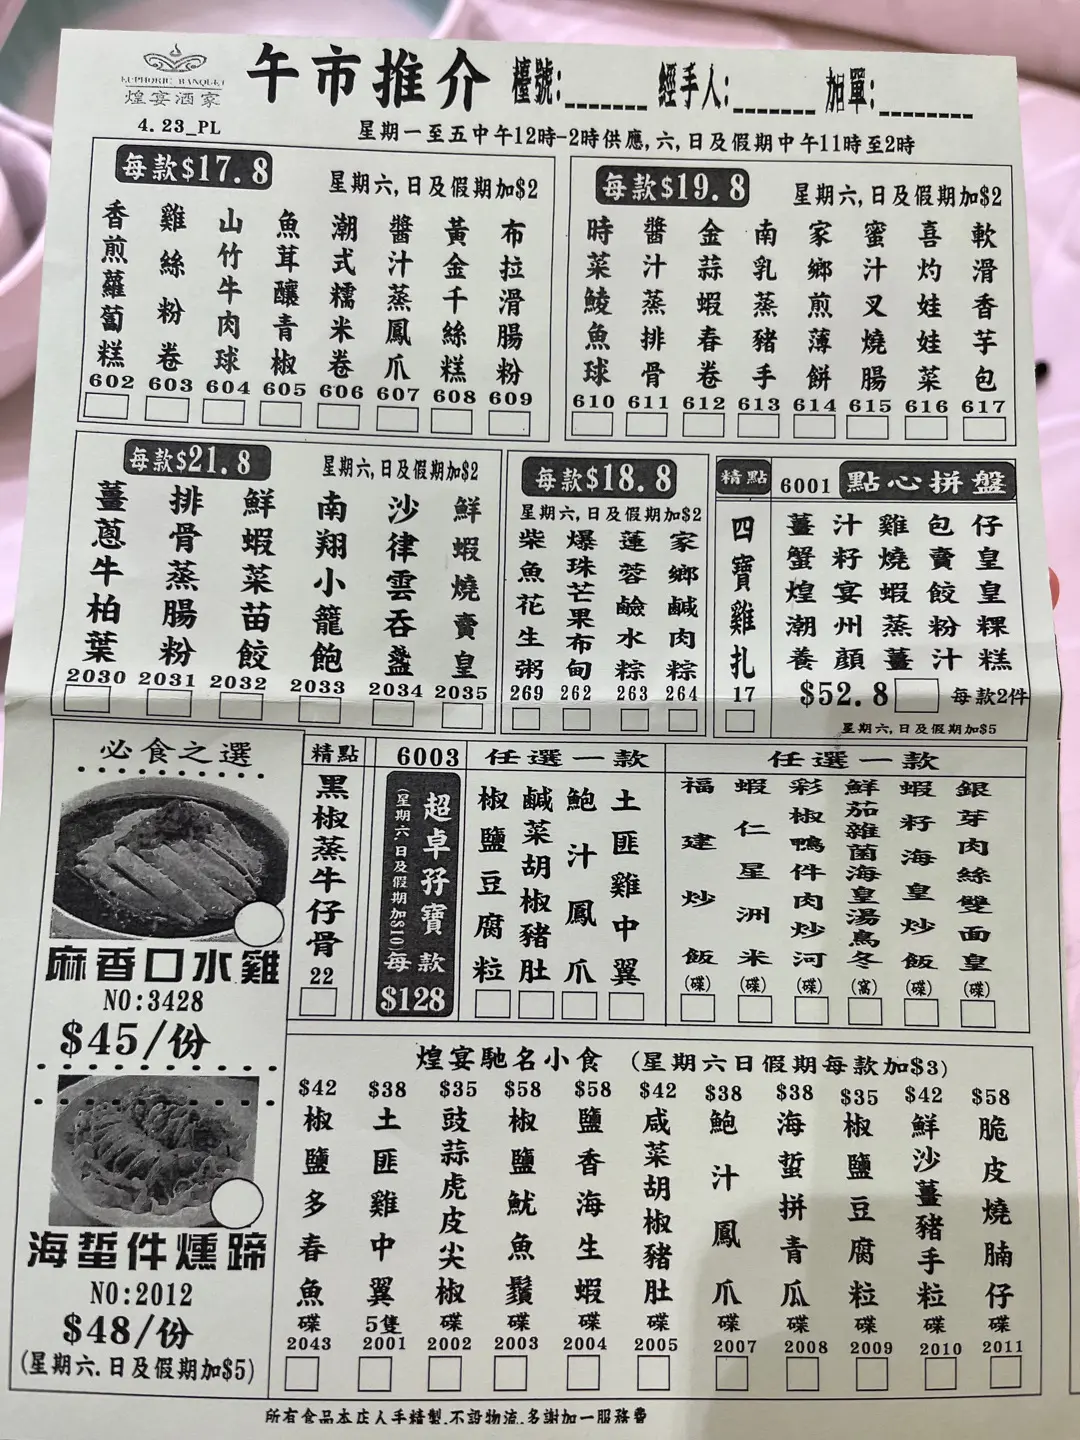 EUPHORIC BANQUET
煌宴酒家
4. 23_PL
午市推介
檯號:
經手人:
加單:
星期一至五中午12時-2時供應,六,日及假期中午11時至2時
每款$17.8
星期六,日及假期加$2
香煎蘿蔔糕
602
雞絲粉卷
603
山竹牛肉球
604
魚茸釀青椒
605
潮式糯米卷
606
醬汁蒸鳳爪
607
黃金千絲糕
608
布拉滑腸粉
609
每款$19.8
星期六,日及假期加$2
時菜鯪魚球
610
醬汁蒸排骨
611
金蒜蝦春卷
612
南乳蒸豬手
613
家鄉煎薄餅
614
蜜汁叉燒腸
615
喜灼娃娃菜
616
軟滑香芋包
617
每款$21.8
星期六,日及假期加$2
薑蔥牛柏葉
2030
排骨蒸腸粉
2031
鮮蝦菜苗餃
2032
南翔小籠飽
2033
沙律雲吞盞
2034
鮮蝦燒賣皇
2035
每款$18.8
星期六,日及假期加$2
柴魚花生粥
269
爆珠芒果布甸
262
蓮蓉鹼水粽
263
家鄉鹹肉粽
264
精點
四寶雞扎
17
6001
點心拼盤
薑汁雞包仔
蟹籽燒賣皇
煌宴蝦餃皇
潮州蒸粉粿
養顏薑汁糕
$52.8
每款2件
星期六,日及假期加$5
必食之選
麻香口水雞
NO:3428
$45/份
海蜇件燻蹄
NO:2012
$48/份
(星期六.日及假期加$5)
精點
黑椒蒸牛仔骨
22
6003
超卓孖寶
(星期六日及假期加$10)
每款
$128
任選一款
椒鹽豆腐粒
鹹菜胡椒豬肚
鮑汁鳳爪
土匪雞中翼
任選一款
福建炒飯(碟)
蝦仁星洲米(碟)
彩椒鴨件肉炒河(碟)
鮮茄雜菌海皇湯烏冬(窩)
蝦籽海皇炒飯(碟)
銀芽肉絲雙面皇(碟)
煌宴馳名小食
(星期六日假期每款加$3)
$42
椒鹽多春魚
碟
2043
$38
土匪雞中翼
5隻
2001
$35
豉蒜虎皮尖椒
碟
2002
$58
椒鹽魷魚鬚
碟
2003
$58
鹽香海生蝦
碟
2004
$42
咸菜胡椒豬肚
碟
2005
$38
鮑汁鳳爪
碟
2007
$38
海蜇拼青瓜
碟
2008
$35
椒鹽豆腐粒
碟
2009
$42
鮮沙薑豬手粒
碟
2010
$58
脆皮燒腩仔
碟
2011
所有食品本店人手精製,不設物流,多謝加一服務費